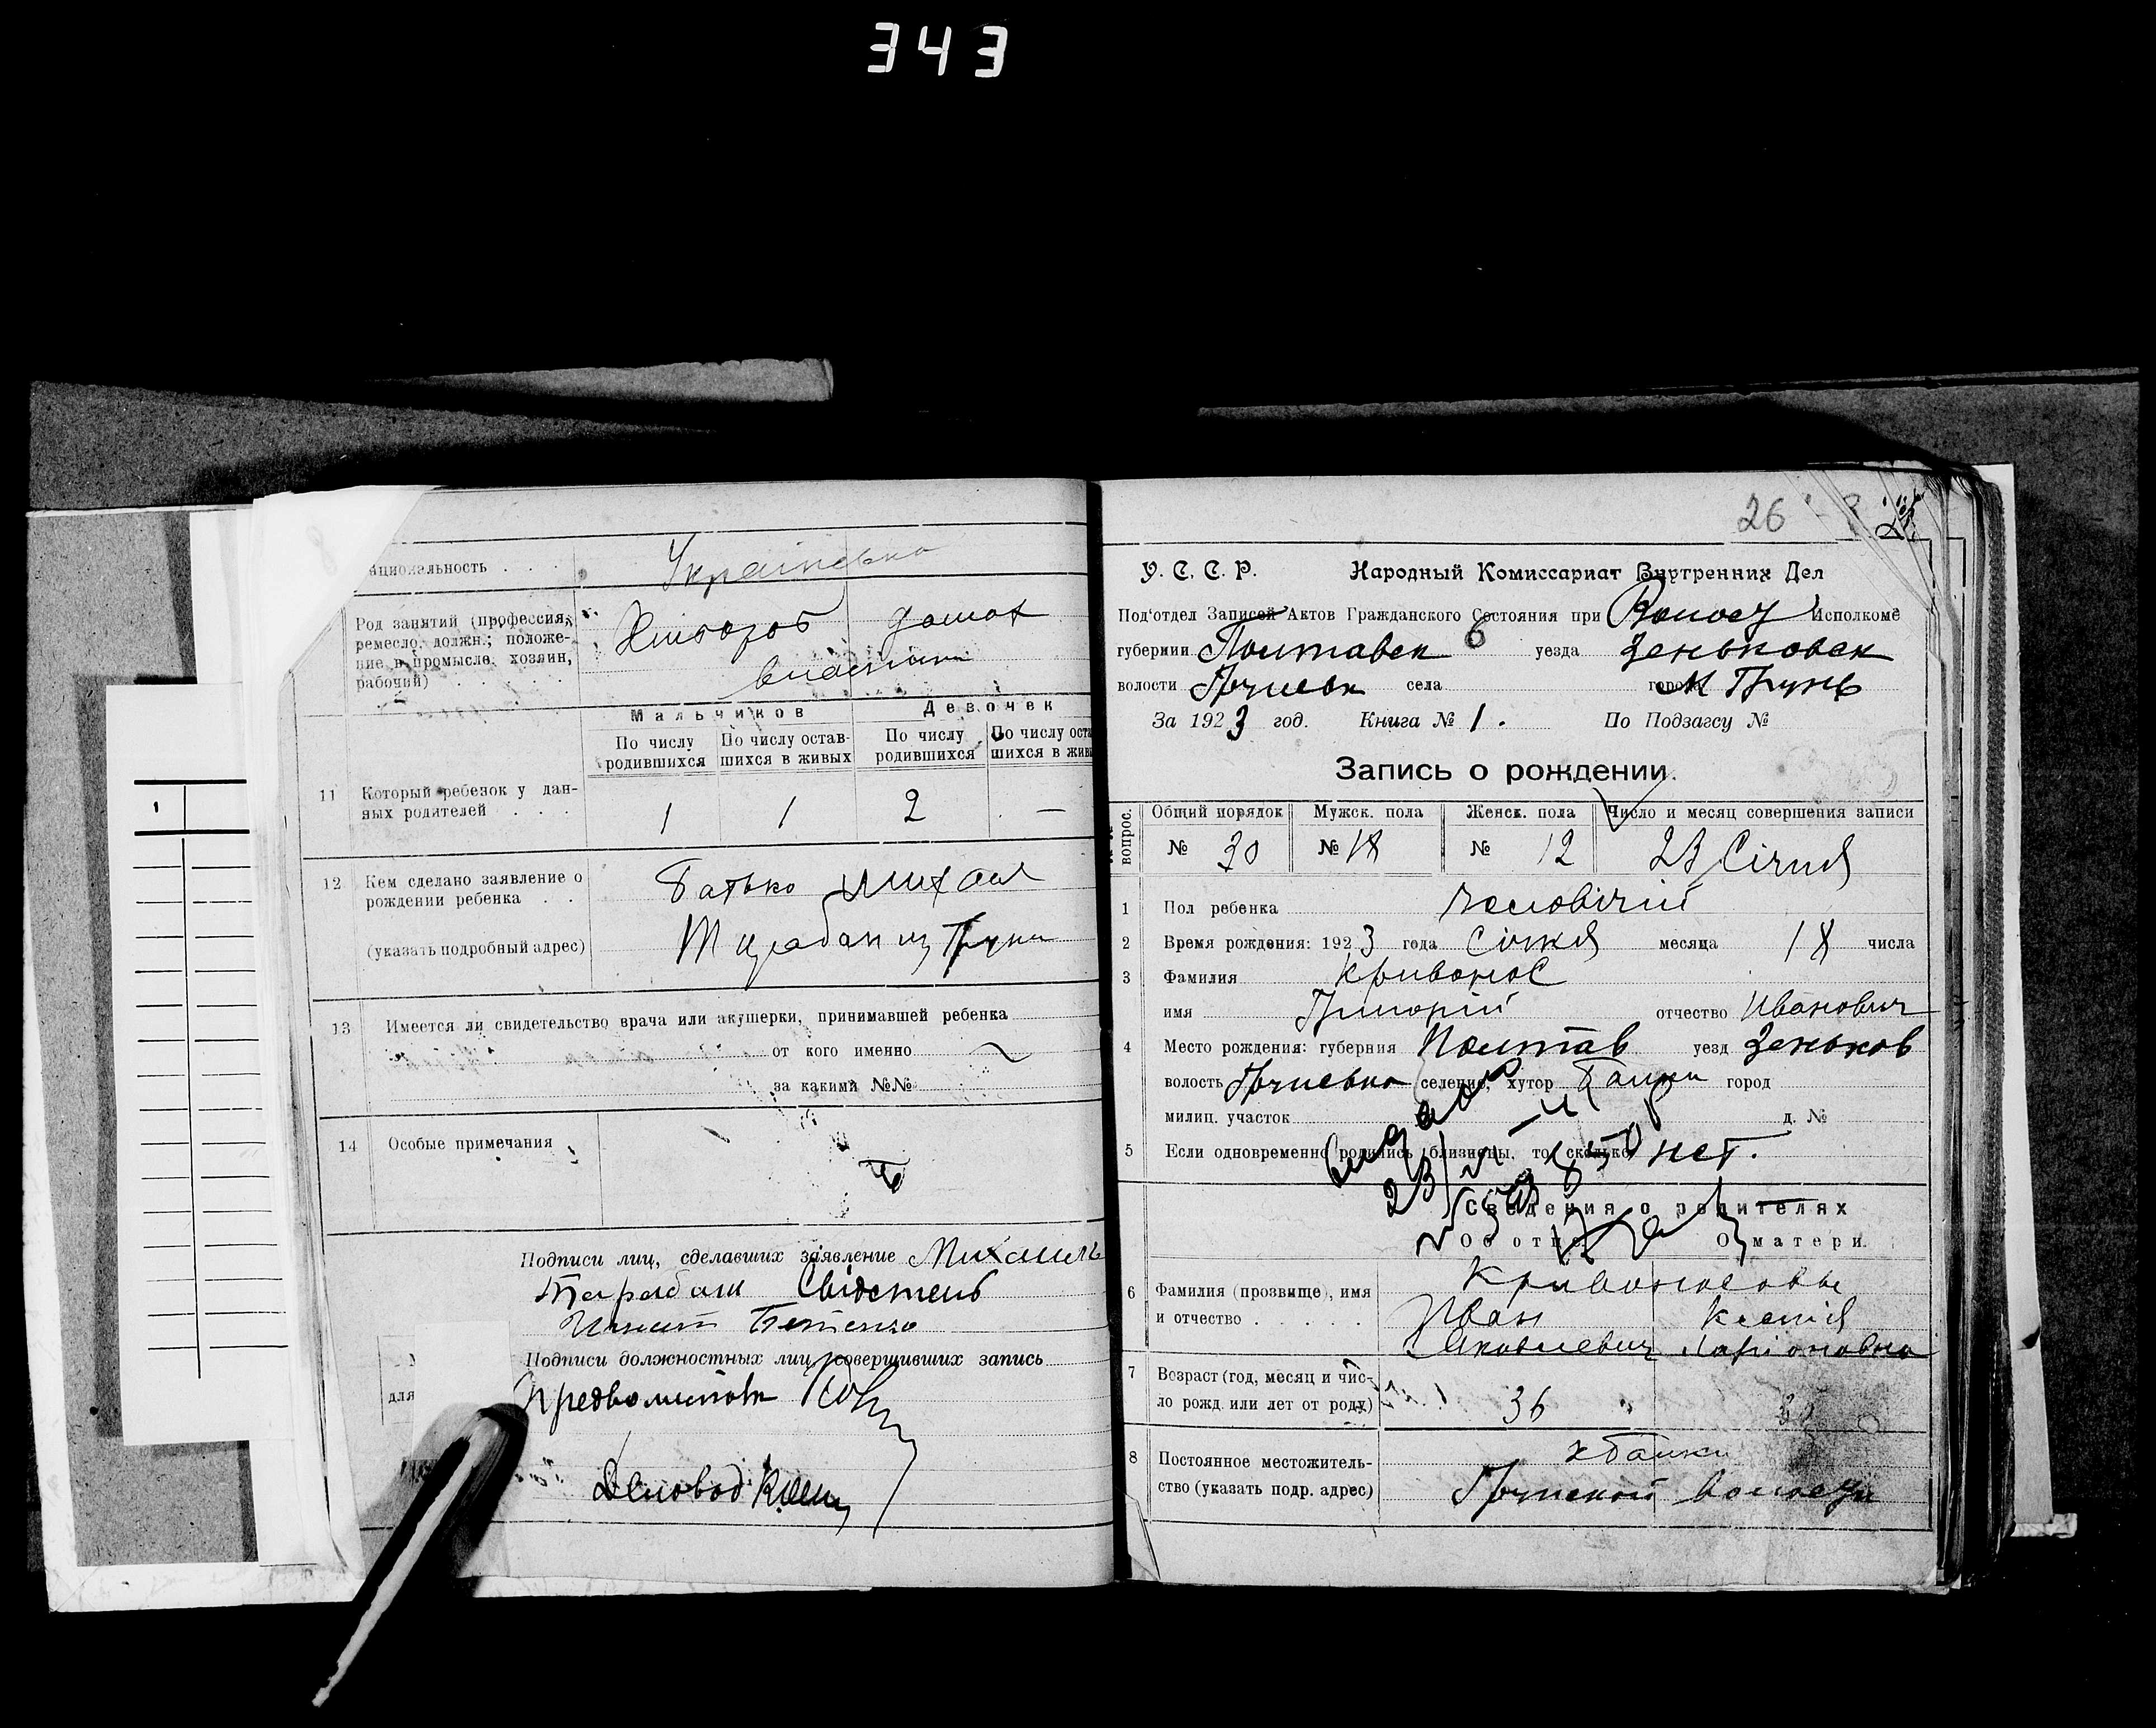 343
ациональность . . . . Українська
Род занятий (профессия,
ремесло, должн.; положе-
ние в промысле, хозяин,
рабочий) . . . . .
Хлібороб домох
власним
Мальчиков Девочек
По числу родившихся По числу остав-шихся в живых По числу родившихся По числу оста шихся в живы
11 Который ребенок у дан-
ных родителей . . . 1 1 2 —
12 Кем сделано заявление о
рождении ребенка . .
Батько Михаил
(указать подробный адрес)
13 Имеется ли свидетельство врача или акушерки, принимавшей ребенка
от кого именно
за какими №№
14 Особые примечания
Подписи лиц, сделавших заявление
Тарабан Свідетель
Подписи должностных лиц, совершивших запись
Деловод
для
26
У. С. С. Р. Народный Комиссариат Внутренних Дел
Под'отдел Записей Актов Гражданского Состояния при Волост Исполкоме
губернии Полтавск уезда Зеньковск
волости села города м Грунь
За 1923 год. Книга № 1. По Подзагсу №
Запись о рождении.
вопрос.
Общий порядок Мужск. пола Женск. пола Число и месяц совершения записи
№ 30 № 18 № 12 23 Січня
1 Пол ребенка чоловічий
2 Время рождения: 1923 года Січня месяца 18 числа
3 Фамилия Кривонос
имя Григорій отчество Иванович
4 Место рождения: губерния Полтав уезд Зеньков
волость селение, хутор Байки город
милиц. участок д. №
5 Если одновременно родились близнецы, то сколько нет.
Сведения о родителях
Об отце О матери.
6 Фамилия (прозвище), имя
и отчество . . . . .
Кривоносовы
Иван Ксенія
Яковлевич Ларіоновна
7 Возраст (год, месяц и чис-
ло рожд. или лет от роду)
36
8 Постоянное местожитель-
ство (указать подр. адрес)
х Байки
волости